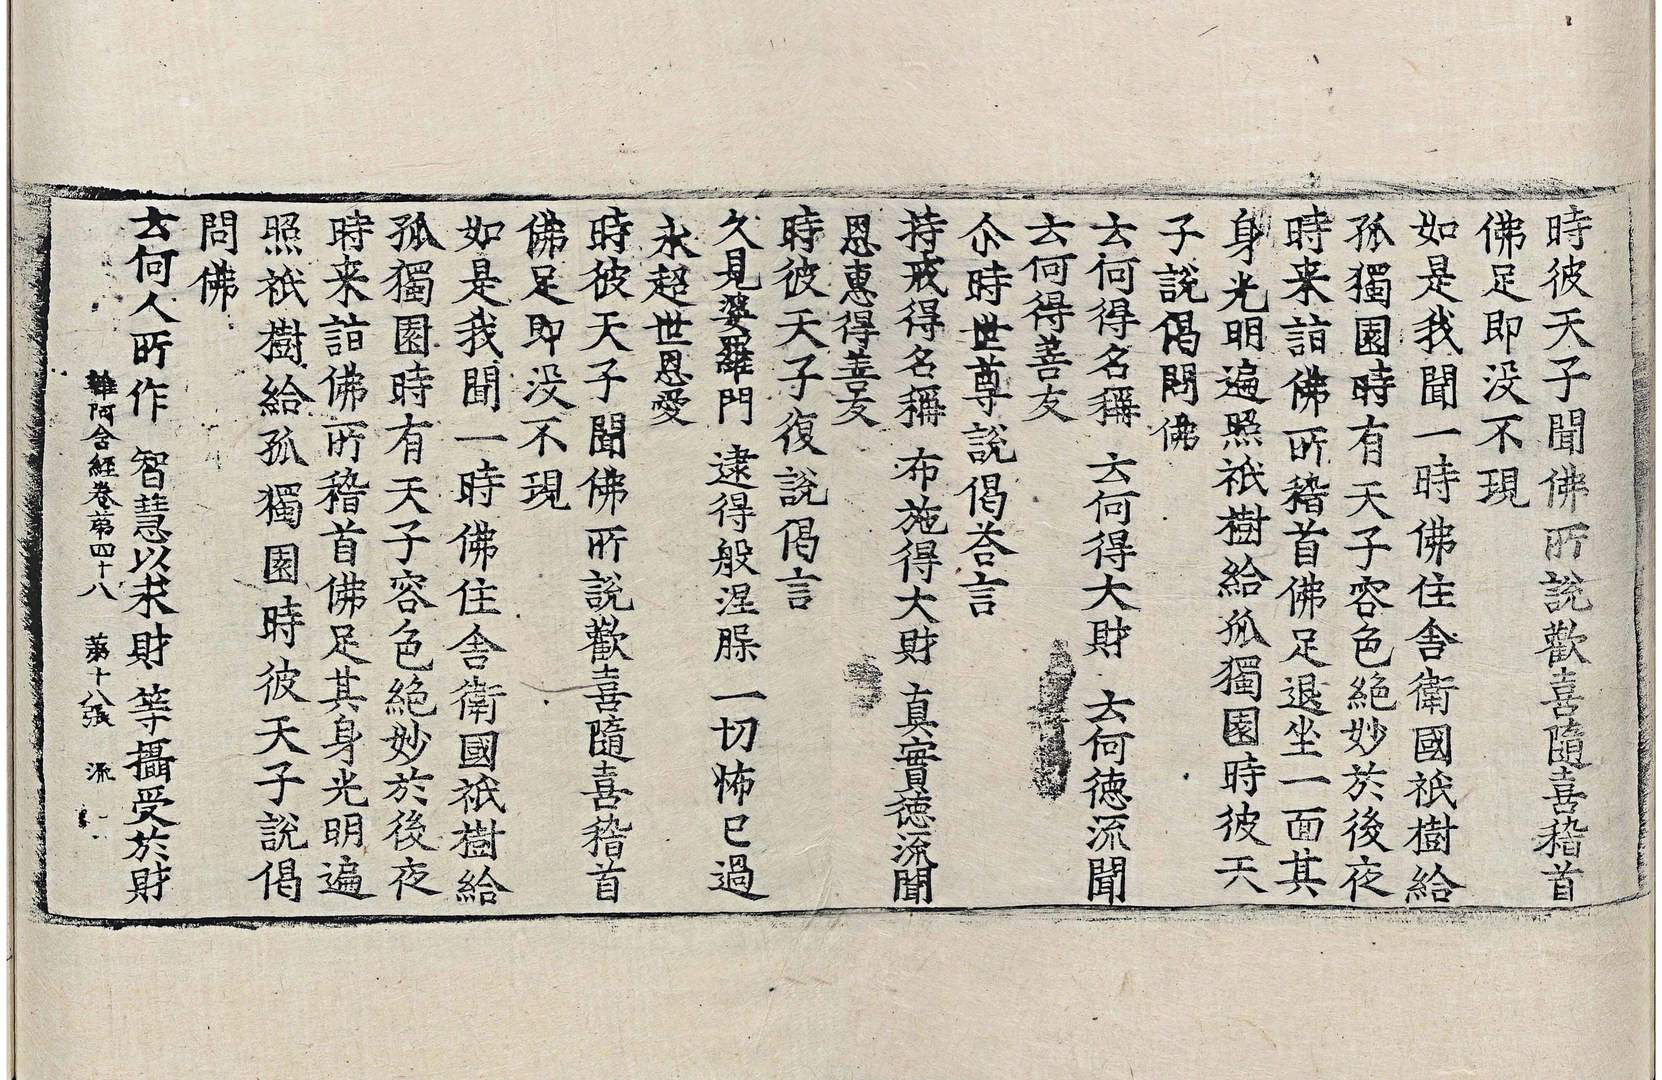 時彼天子聞佛所說歡喜隨喜稽首
佛足即没不現
如是我聞一時佛住舍衛國祇樹給
孤獨園時有天子容色絕妙於後夜
時来詣佛所稽首佛足退坐一面其
身光明遍照祇樹給孤獨園時彼天
子說偈問佛
云何得名稱 云何得大財 云何德流聞
云何得善友
尒時世尊說偈荅言
持戒得名稱 布施得大財 真實德流聞
恩惠得善友
時彼天子復說偈言
久見婆羅門 逮得般涅槃 一切怖已過
永超世恩愛
時彼天子聞佛所說歡喜隨喜稽首
佛足即没不現
如是我聞一時佛住舍衛國祇樹給
孤獨園時有天子容色絕妙於後夜
時来詣佛所稽首佛足其身光明遍
照祇樹給孤獨園時彼天子說偈
問佛
云何人所作 智慧以求財 等攝受於財
雜阿含經卷第四十八 第十八張 流